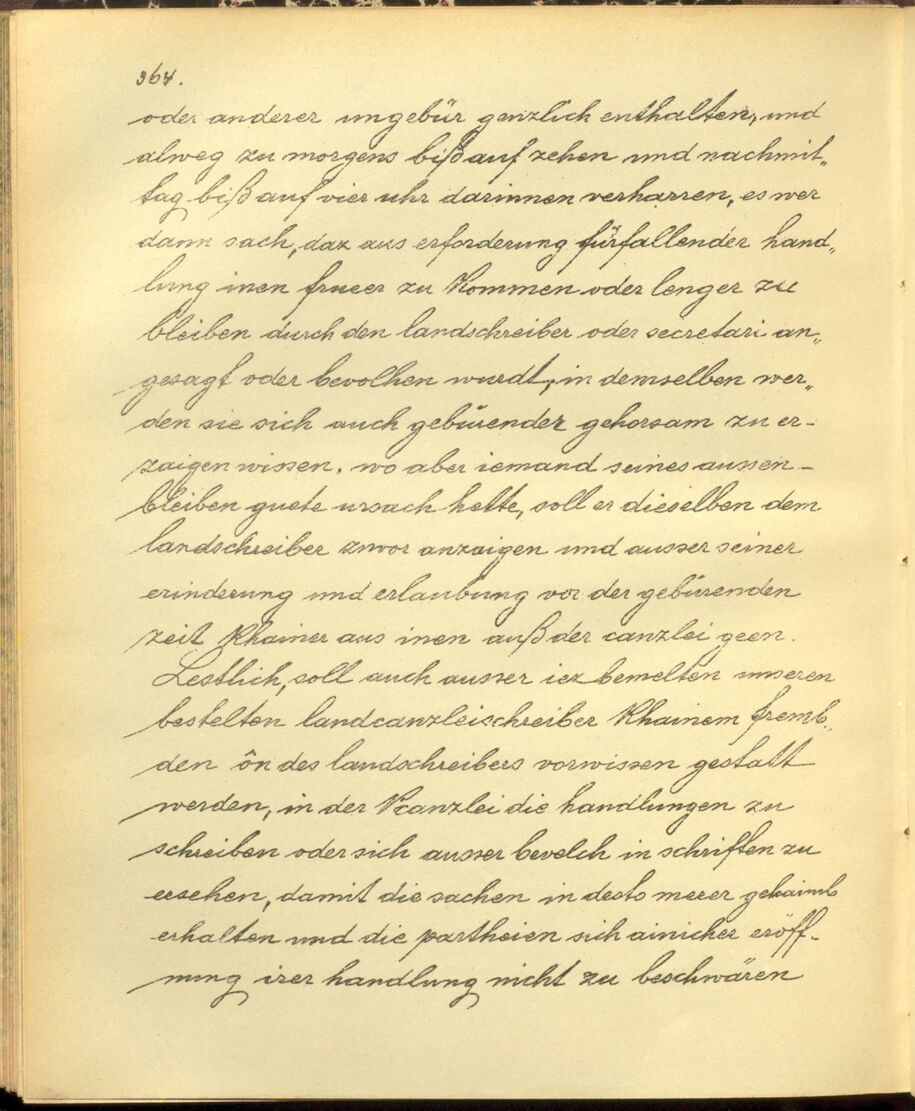 364.
oder anderer ungebür genzlich enthalten, und
alweg zu morgens biß auf zehen und nachmit„
tag biß auf vier uhr darinnen verharren, es wer
dann sach, daz aus erforderung fürfallender hand„
lung inen frueer zu kommen oder lenger zu
bleiben durch den landschreiber oder secretari an„
gesagt oder bevolhen wurdt, in demselben wer„
den sie sich auch gebürender gehorsam zu er-
zaigen wissen. wo aber iemand seines aussen-
bleiben guete ursach hette, soll er dieselben dem
landschreiber zuvor anzaigen und ausser seiner
erinderung und erlaubung vor der gebürenden
zeit khainer aus inen auß der canzlei geen.
Lestlich, soll auch ausser iez bemelten unseren
bestelten landcanzleischreiber khainem fremb„
den ôn des landschreibers vorwissen gestatt
werden, in der canzlei die handlungen zu
schreiben oder sich ausser bevelch in schriften zu
ersehen, damit die sachen in desto merer gehaimb
erhalten und die partheien sich ainicher eröff-
nung irer handlung nicht zu beschwären